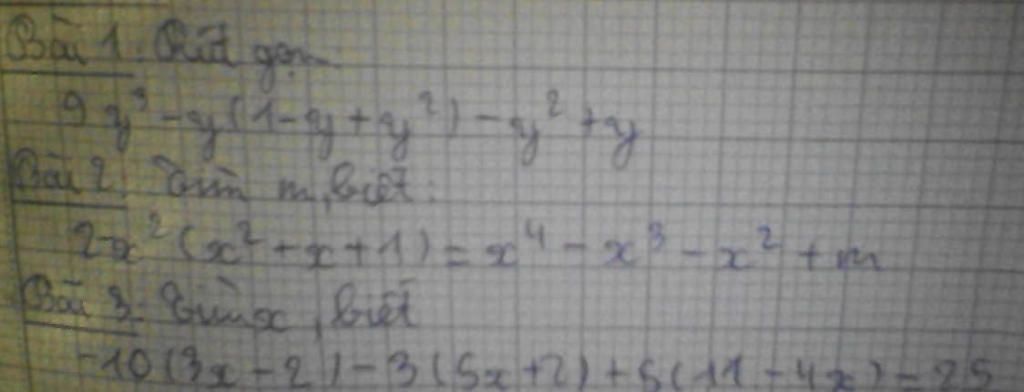 Bài 1: Rút gọn
9y³ - y(1 - y + y²) - y² + y
Bài 2: Tìm m, biết:
2 - x² (x² + x + 1) = x⁴ - x³ - x² + m
Bài 3: Tìm x, biết
-10(3x - 2) - 3(5x + 2) + 5(11 - 4x) = 25